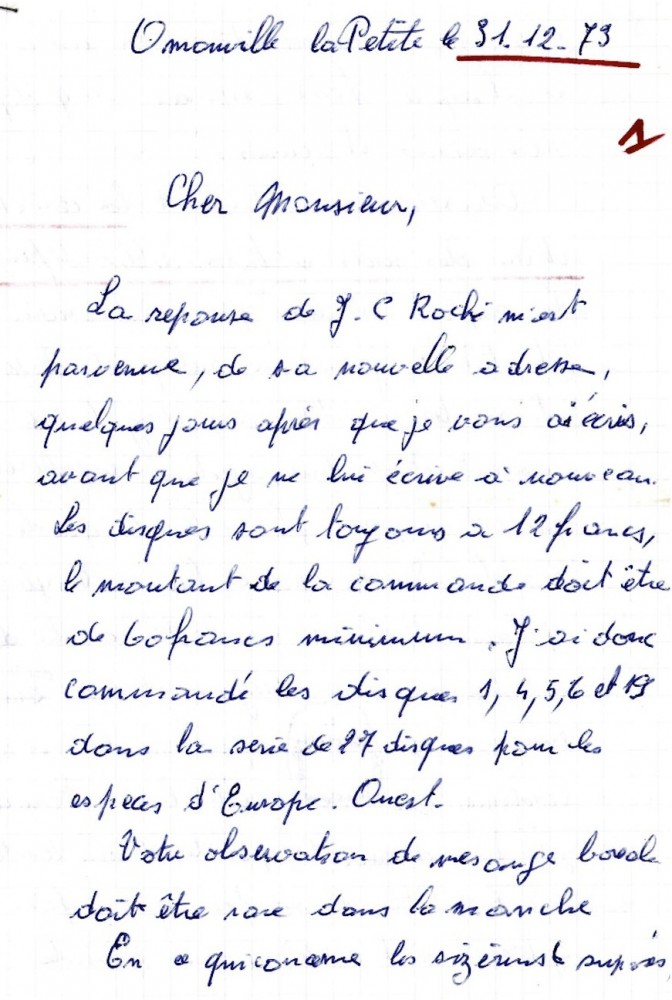 Omonville la Petite le 31.12.73
1
Cher Monsieur,
La reponse de J. C Roché m'est
parvenue, de sa nouvelle adresse,
quelques jours après que je vous ai écris,
avant que je ne lui écrive à nouveau.
Les disques sont toujours a 12 francs,
le montant de la commande doit être
de 60 francs minimum. J'ai donc
commandé les disques 1, 4, 5, 6 et 19
dans la serie de 27 disques pour les
especes d'Europe. Ouest.
Votre observation de mesange boreale
doit être rare dans la manche
En ce qui concerne les sizerins